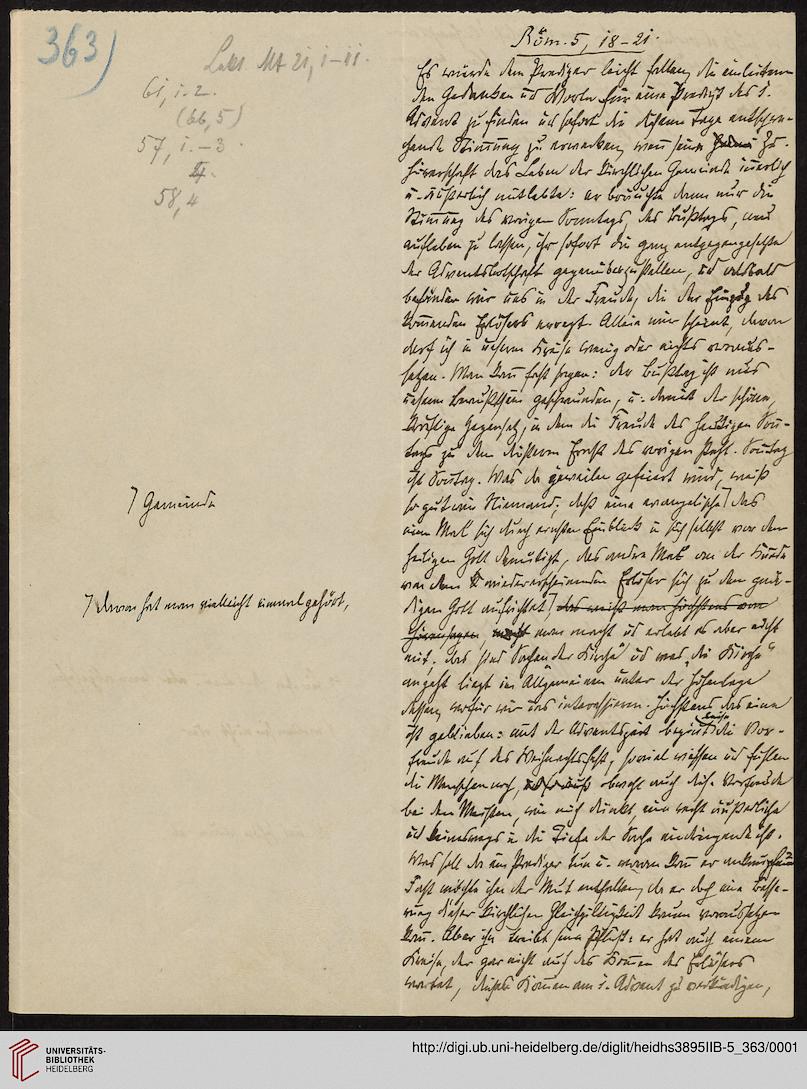 363)
Lekt. Mt 21, 1-11.
61, 1. 2.
(66, 5)
57, 1.-3.
4.
58, 4
Röm. 5, 18-21.
Es würde dem Prediger leicht fallen, die einleiten-
den Gedanken und Worte für eine Predigt des 1.
Advent zu finden und sofort die diesem Tage entspre-
chende Stimmung zu erwecken, wenn seine Zu-
hörerschaft das Leben der kirchlichen Gemeinde innerlich
u. äußerlich mitlebte: er brauchte dann nur die
Stimmung des vorigen Sonntags, des Bußtags, neu
aufleben zu lassen, ihr sofort die ganz entgegengesetzte
der Adventsbotschaft gegenüberzustellen, und alsbald
befänden wir uns in der Freude, die der Einzug des
kommenden Erlösers erregt. Allein mir scheint, davon
darf ich in unserm Kreise wenig oder nichts voraus-
setzen. Man kann fast sagen: der Bußtag ist aus
unserm Bewußtsein geschwunden, u. damit der schöne,
kräftige Gegensatz, in dem die Freude des heutigen Sonn-
tags zu dem düsteren Ernst des vorigen steht. Sonntag
ist Sonntag. Was da jeweilen gefeiert wird, weiß
so gut wie Niemand; daß eine evangelische ⌉ das
⌉ Gemeinde
eine Mal sich durch ernsten Einblick in sich selbst vor dem
heiligen Gott demütigt, das andre Mal an der Kunde
von dem wiedererscheinenden Erlöser sich zu dem gnä-
digen Gott aufrichtet, ⌉ das weiß man höchstens vom
⌉ davon hat man vielleicht einmal gehört,
Hörensagen man macht und erlebt es aber nicht
mit; das sind Sachen der „Kirche“ und was „die Kirche“
angeht liegt im Allgemeinen unter der Höhenlage
dessen, wofür wir uns interessieren. Höchstens das eine
ist geblieben: mit der Adventszeit beginnt die Vor-
freude auf das Weihnachtsfest, soviel wissen und fühlen
die Menschen noch, obwohl auch diese Vorfreude
bei den Meisten, wie mich dünkt, eine recht äußerliche
und keineswegs in die Tiefe der Sache eindringende ist.
Was soll da ein Prediger tun u. woran kann er anknüpfen?
Fast möchte ihm der Mut entfallen, da er doch eine Besse-
rung dieser kirchlichen Gleichgiltigkeit kaum voraussetzen
kann. Aber ihn treibt seine Pflicht: er hat auch einem
Kreise, der gar nicht auf das Kommen des Erlösers
wartet, dieses Kommen am 1. Advent zu verkündigen,
UNIVERSITÄTS-
BIBLIOTHEK
HEIDELBERG
http://digi.ub.uni-heidelberg.de/diglit/heidhs3895IIB-5_363/0001